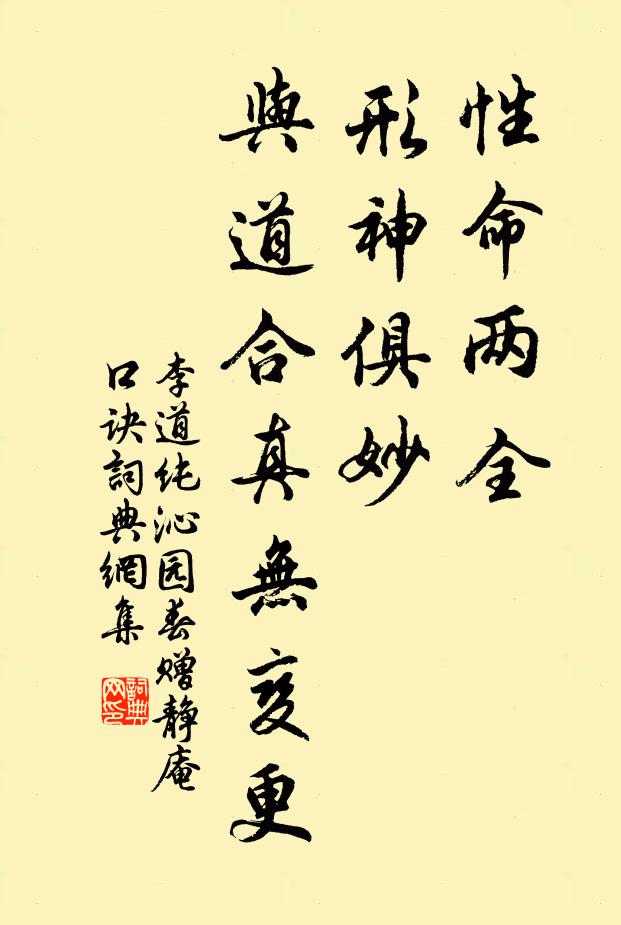 性命两全
形神俱妙
與道合真無变更
李道纯沁园春赠静庵
口诀詞典網集
詞典网印